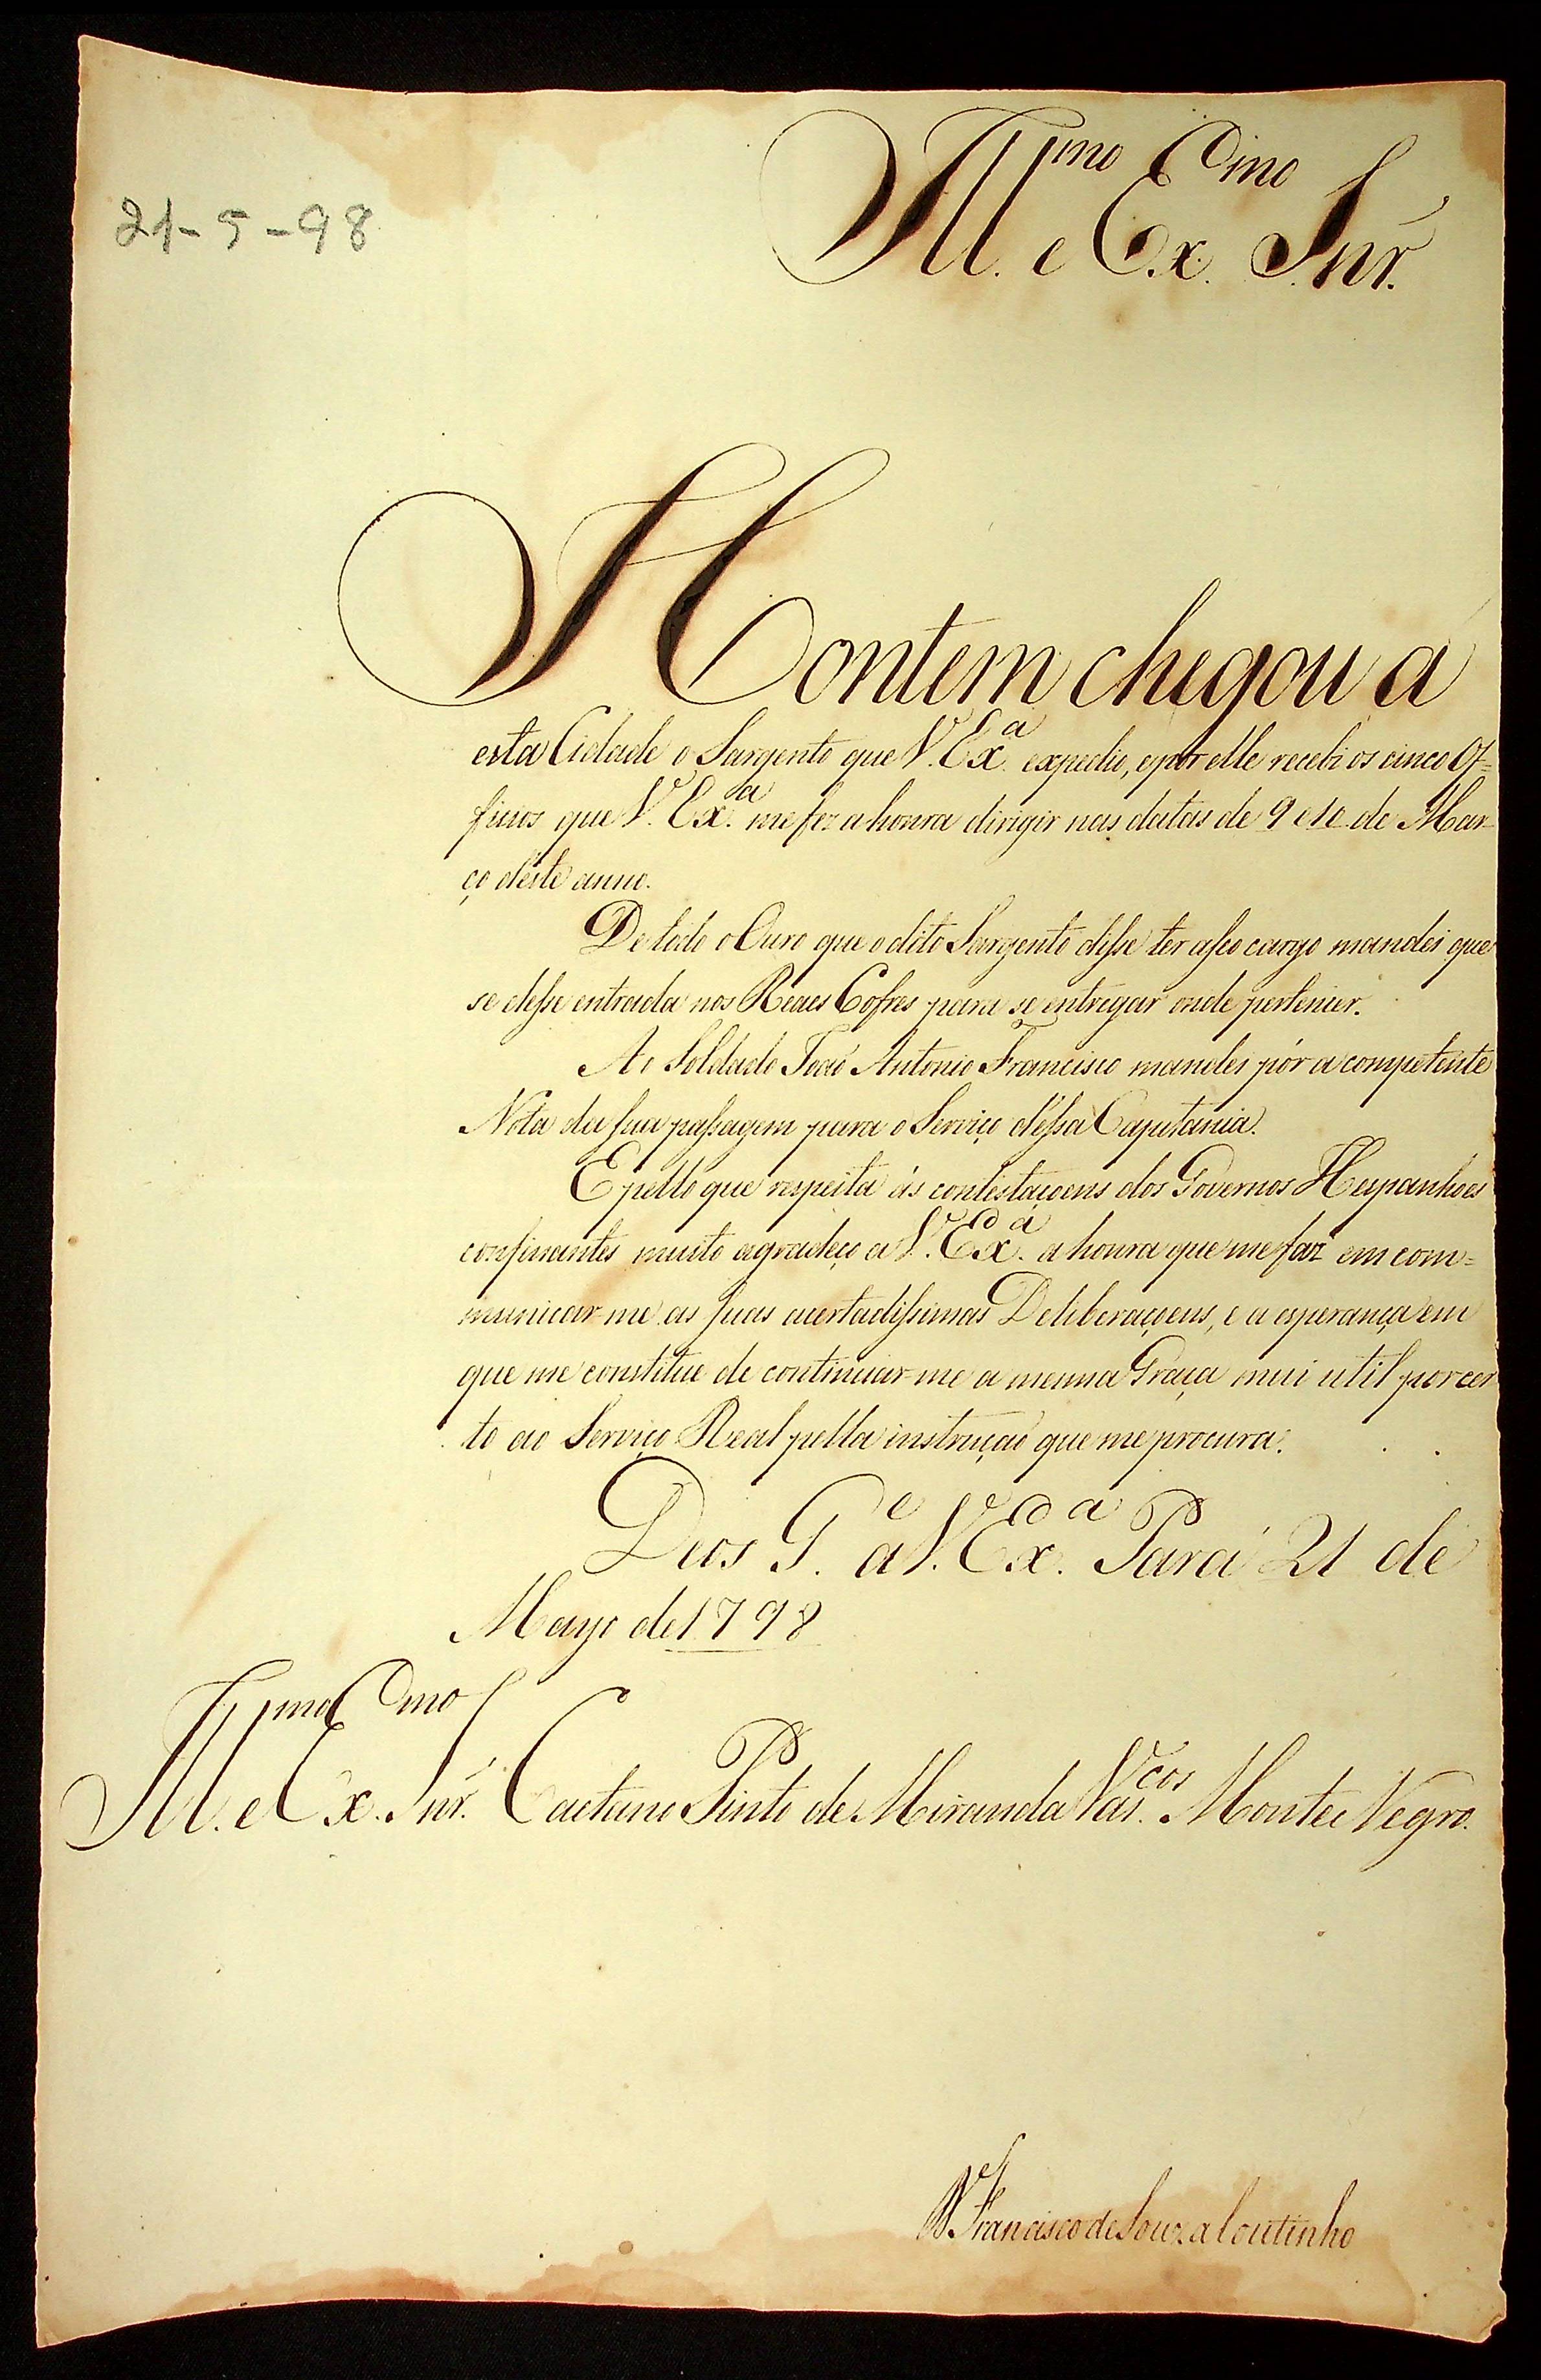 21-5-98
Ill.mo e Ex.mo Snr.
Hontem chegou a
esta Cidade o Sargento que V. Ex.a expedio, e por elle recebi os cinco Of=
ficios que V. Ex.a me fez a honra dirigir nas datas de 9 e 10 de Mar-
ço d'este anno.
De todo o Ouro que o dito Sargento disse ter a seo cargo mandei que
se desse entrada nos Reaes Cofres para se entregar onde pertencer.
Ao Soldado João Antonio Francisco mandei pór a competente
Nota da sua passagem para o Serviço d'essa Capitania.
E pello que respeita ás contestaçoens dos Governos Hespanhoes
confinantes muito agradeço a V. Ex.a a honra que me faz em com=
municar-me as suas acertadissimas Deliberaçoens, e a esperança em
que me constitue de continuar-me a mesma Graça mui util por cer
to ao Serviço Real pella instrução que me procura.
Deos G.e a V. Ex.a Pará 21 de
Mayo de 1798
Ill.mo e Ex.mo Snr. Caetano Pinto de Miranda Vas.cos Monte Negro.
D. Francisco de Souza Coutinho